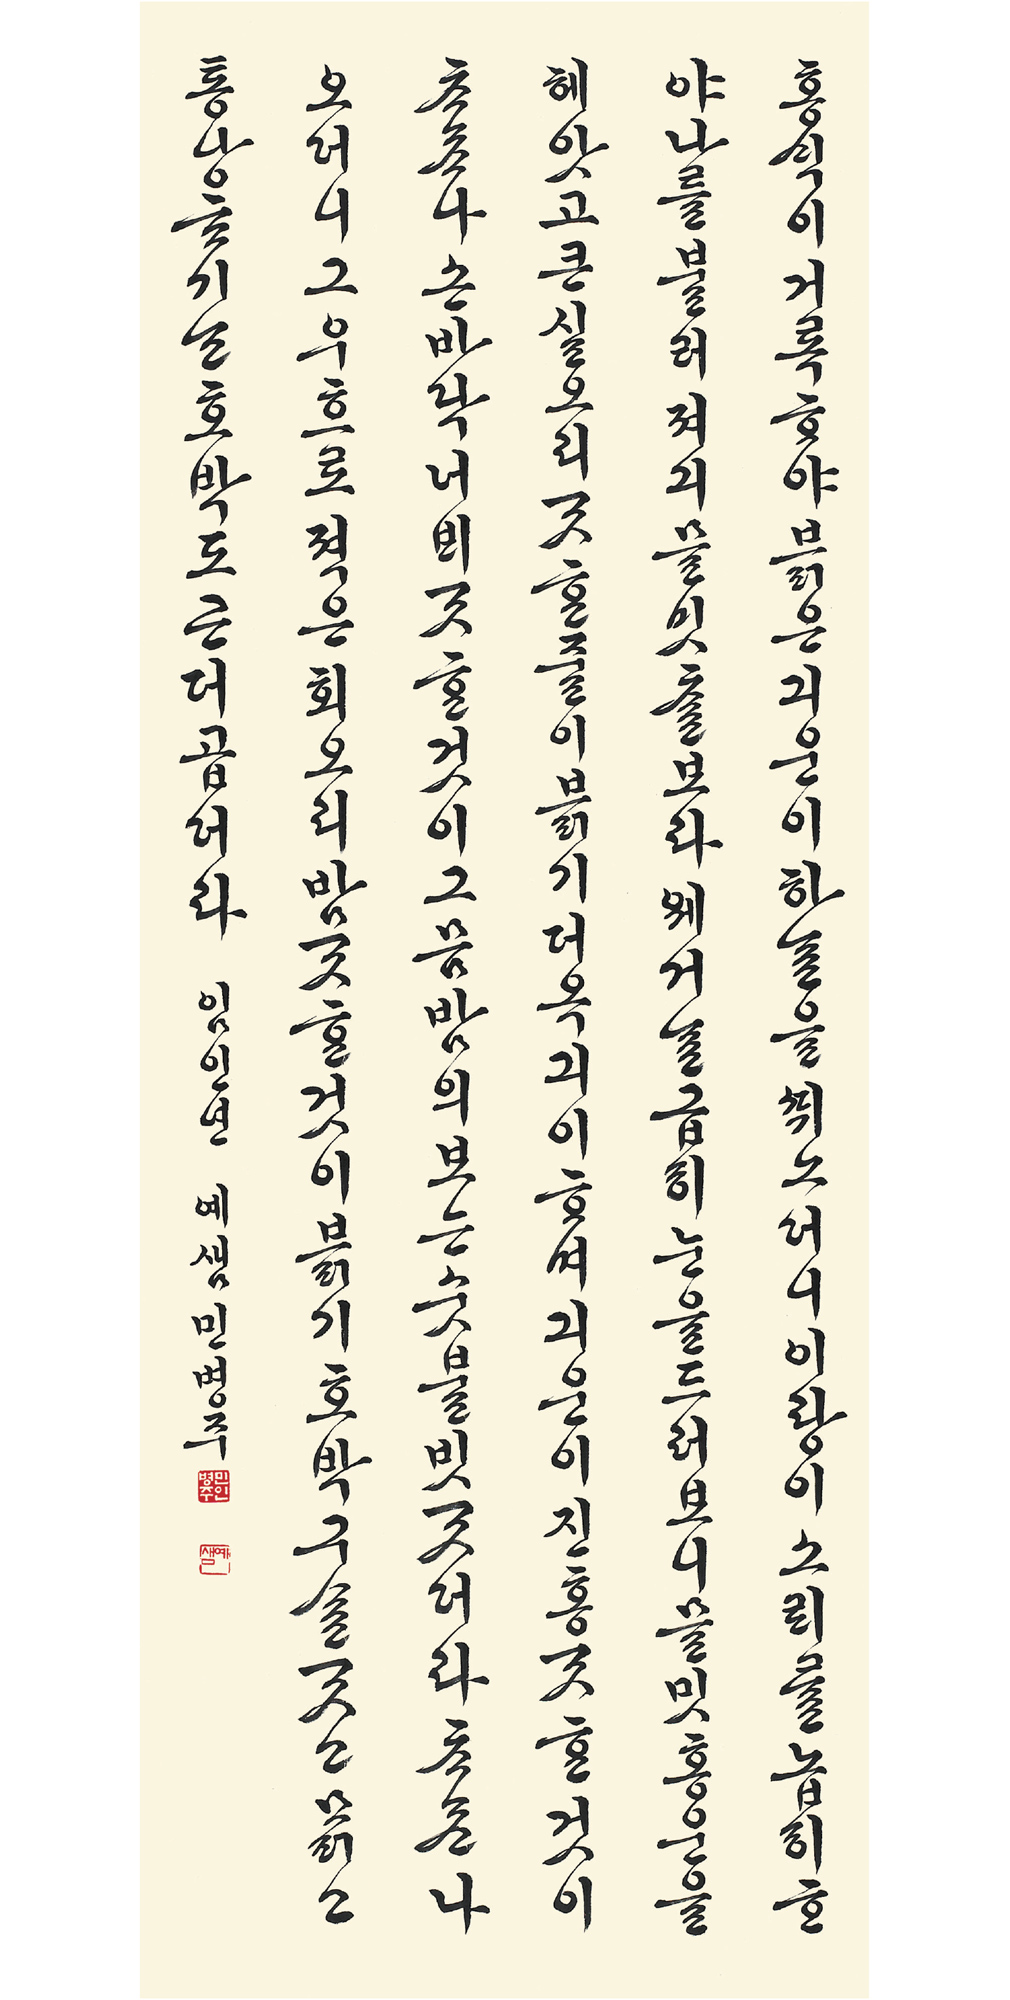 홍ᄉᆡᆨ이거록ᄒᆞ야븕은긔운이하ᄂᆞᆯ을ᄯᅱ노더니이랑이소ᄅᆡᄅᆞᆯ놉히ᄒᆞ
야나ᄅᆞᆯ블러져긔믈밋ᄎᆞᆯ보라웨거ᄂᆞᆯ급히눈을드러보니믈밋홍운을
헤앗고큰실오리ᄀᆞᆺᄒᆞᆫ줄이븕기더옥긔이ᄒᆞ며긔운이진홍ᄀᆞᆺᄒᆞᆫ것이
ᄎᆞᄎᆞ나손바닥너비ᄀᆞᆺᄒᆞᆫ것이그믐밤의보는숫불빗ᄀᆞᆺ더라ᄎᆞᄎᆞ나
오더니그우흐로젹은회오리밤ᄀᆞᆺᄒᆞᆫ것이븕기호박구ᄉᆞᆯᄀᆞᆺ고ᄆᆞᆰ고
통낭ᄒᆞ기ᄂᆞᆫ호박도곤더곱더라 임인년 예샘민병주
민인병주
예샘